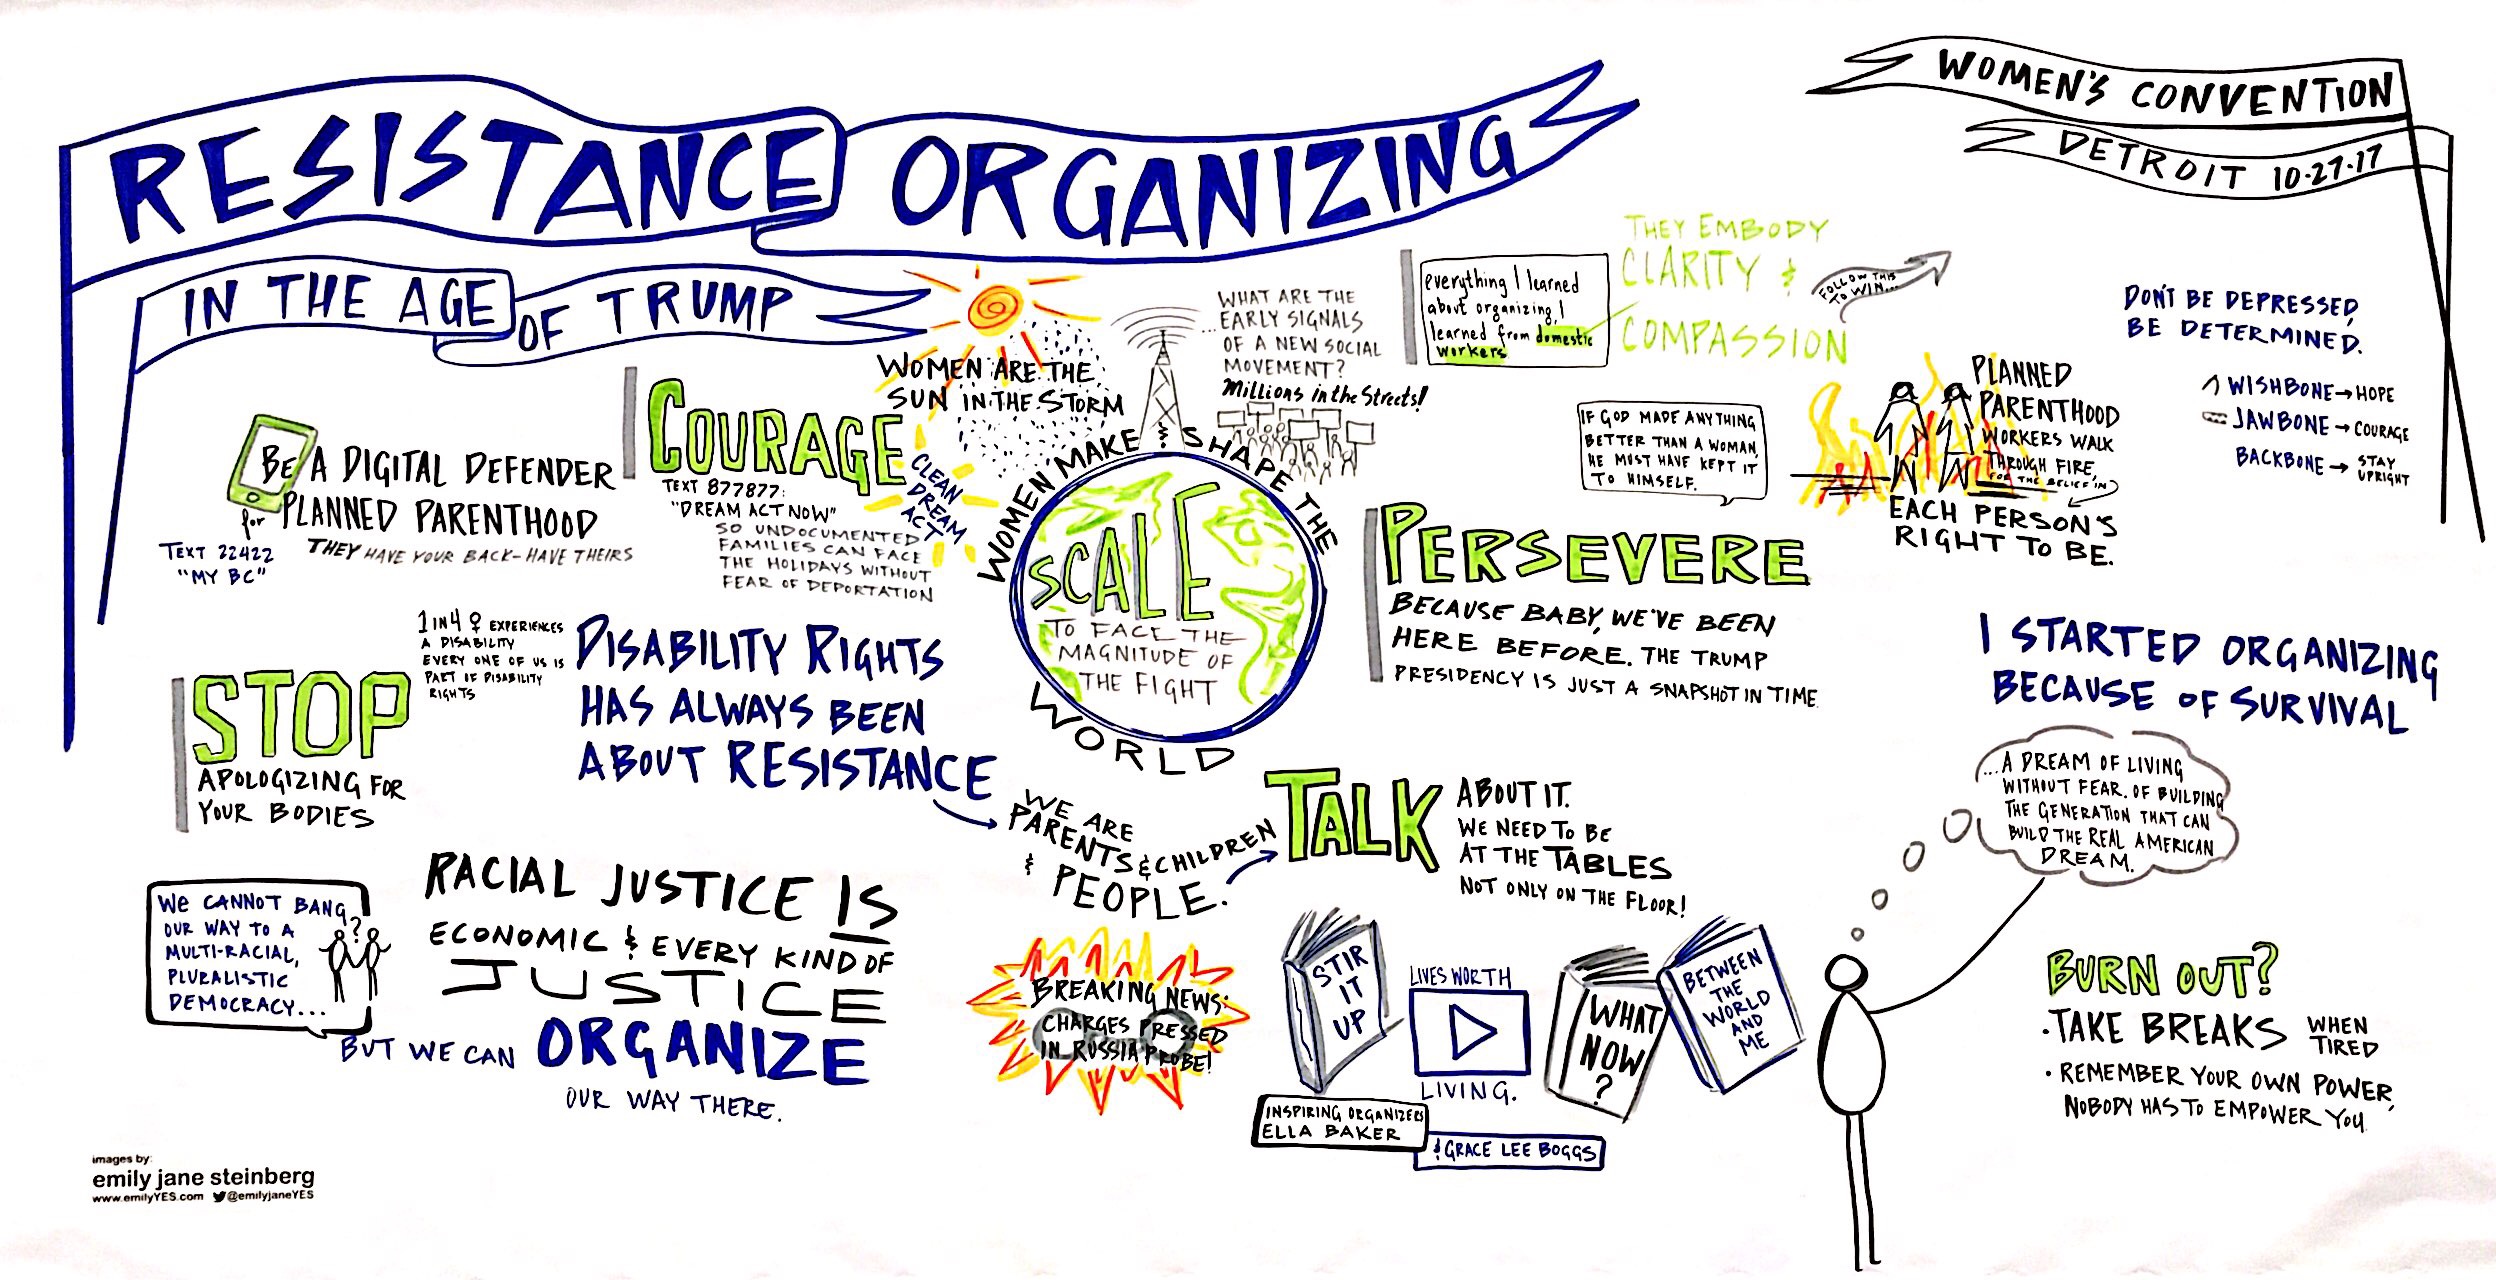 RESISTANCE ORGANIZING
IN THE AGE OF TRUMP
WOMEN'S CONVENTION
DETROIT 10·27·17
BE A DIGITAL DEFENDER
for PLANNED PARENTHOOD
THEY HAVE YOUR BACK- HAVE THEIRS
TEXT 22422
"MY BC"
COURAGE
TEXT 877877:
"DREAM ACT NOW"
SO UNDOCUMENTED
FAMILIES CAN FACE
THE HOLIDAYS WITHOUT
FEAR OF DEPORTATION
CLEAN
DREAM
ACT
WOMEN ARE THE
SUN IN THE STORM
...WHAT ARE THE
EARLY SIGNALS
OF A NEW SOCIAL
MOVEMENT?
Millions in the Streets!
WOMEN MAKE & SHAPE THE
WORLD
SCALE
TO FACE THE
MAGNITUDE OF
THE FIGHT
everything I learned
about organizing, I
learned from domestic
workers
THEY EMBODY
CLARITY &
COMPASSION
FOLLOW THIS
TO WIN...
IF GOD MADE ANYTHING
BETTER THAN A WOMAN,
HE MUST HAVE KEPT IT
TO HIMSELF.
PLANNED
PARENTHOOD
WORKERS WALK
THROUGH FIRE,
FOR THE BELIEF IN
EACH PERSON'S
RIGHT TO BE.
DON'T BE DEPRESSED,
BE DETERMINED.
WISHBONE→HOPE
JAWBONE→COURAGE
BACKBONE→STAY
UPRIGHT
PERSEVERE
BECAUSE BABY, WE'VE BEEN
HERE BEFORE. THE TRUMP
PRESIDENCY IS JUST A SNAPSHOT IN TIME.
1 IN 4 ♀ EXPERIENCES
A DISABILITY
EVERY ONE OF US IS
PART OF DISABILITY
RIGHTS
STOP
APOLOGIZING FOR
YOUR BODIES
DISABILITY RIGHTS
HAS ALWAYS BEEN
ABOUT RESISTANCE
WE ARE
PARENTS & CHILDREN
& PEOPLE.
TALK
ABOUT IT.
WE NEED TO BE
AT THE TABLES
NOT ONLY ON THE FLOOR!
I STARTED ORGANIZING
BECAUSE OF SURVIVAL
...A DREAM OF LIVING
WITHOUT FEAR. OF BUILDING
THE GENERATION THAT CAN
BUILD THE REAL AMERICAN
DREAM.
WE CANNOT BANG
OUR WAY TO A
MULTI-RACIAL,
PLURALISTIC
DEMOCRACY...
?
BUT WE CAN ORGANIZE
OUR WAY THERE.
RACIAL JUSTICE IS
ECONOMIC & EVERY KIND OF
JUSTICE
BREAKING NEWS:
CHARGES PRESSED
IN RUSSIA PROBE!
STIR
IT
UP
LIVES WORTH
LIVING.
WHAT
NOW
?
BETWEEN
THE
WORLD
AND
ME
INSPIRING ORGANIZERS
ELLA BAKER
& GRACE LEE BOGGS
BURN OUT?
·TAKE BREAKS WHEN
TIRED
·REMEMBER YOUR OWN POWER,
NOBODY HAS TO EMPOWER YOU.
images by:
emily jane steinberg
www.emilyYES.com @emilyjaneYES